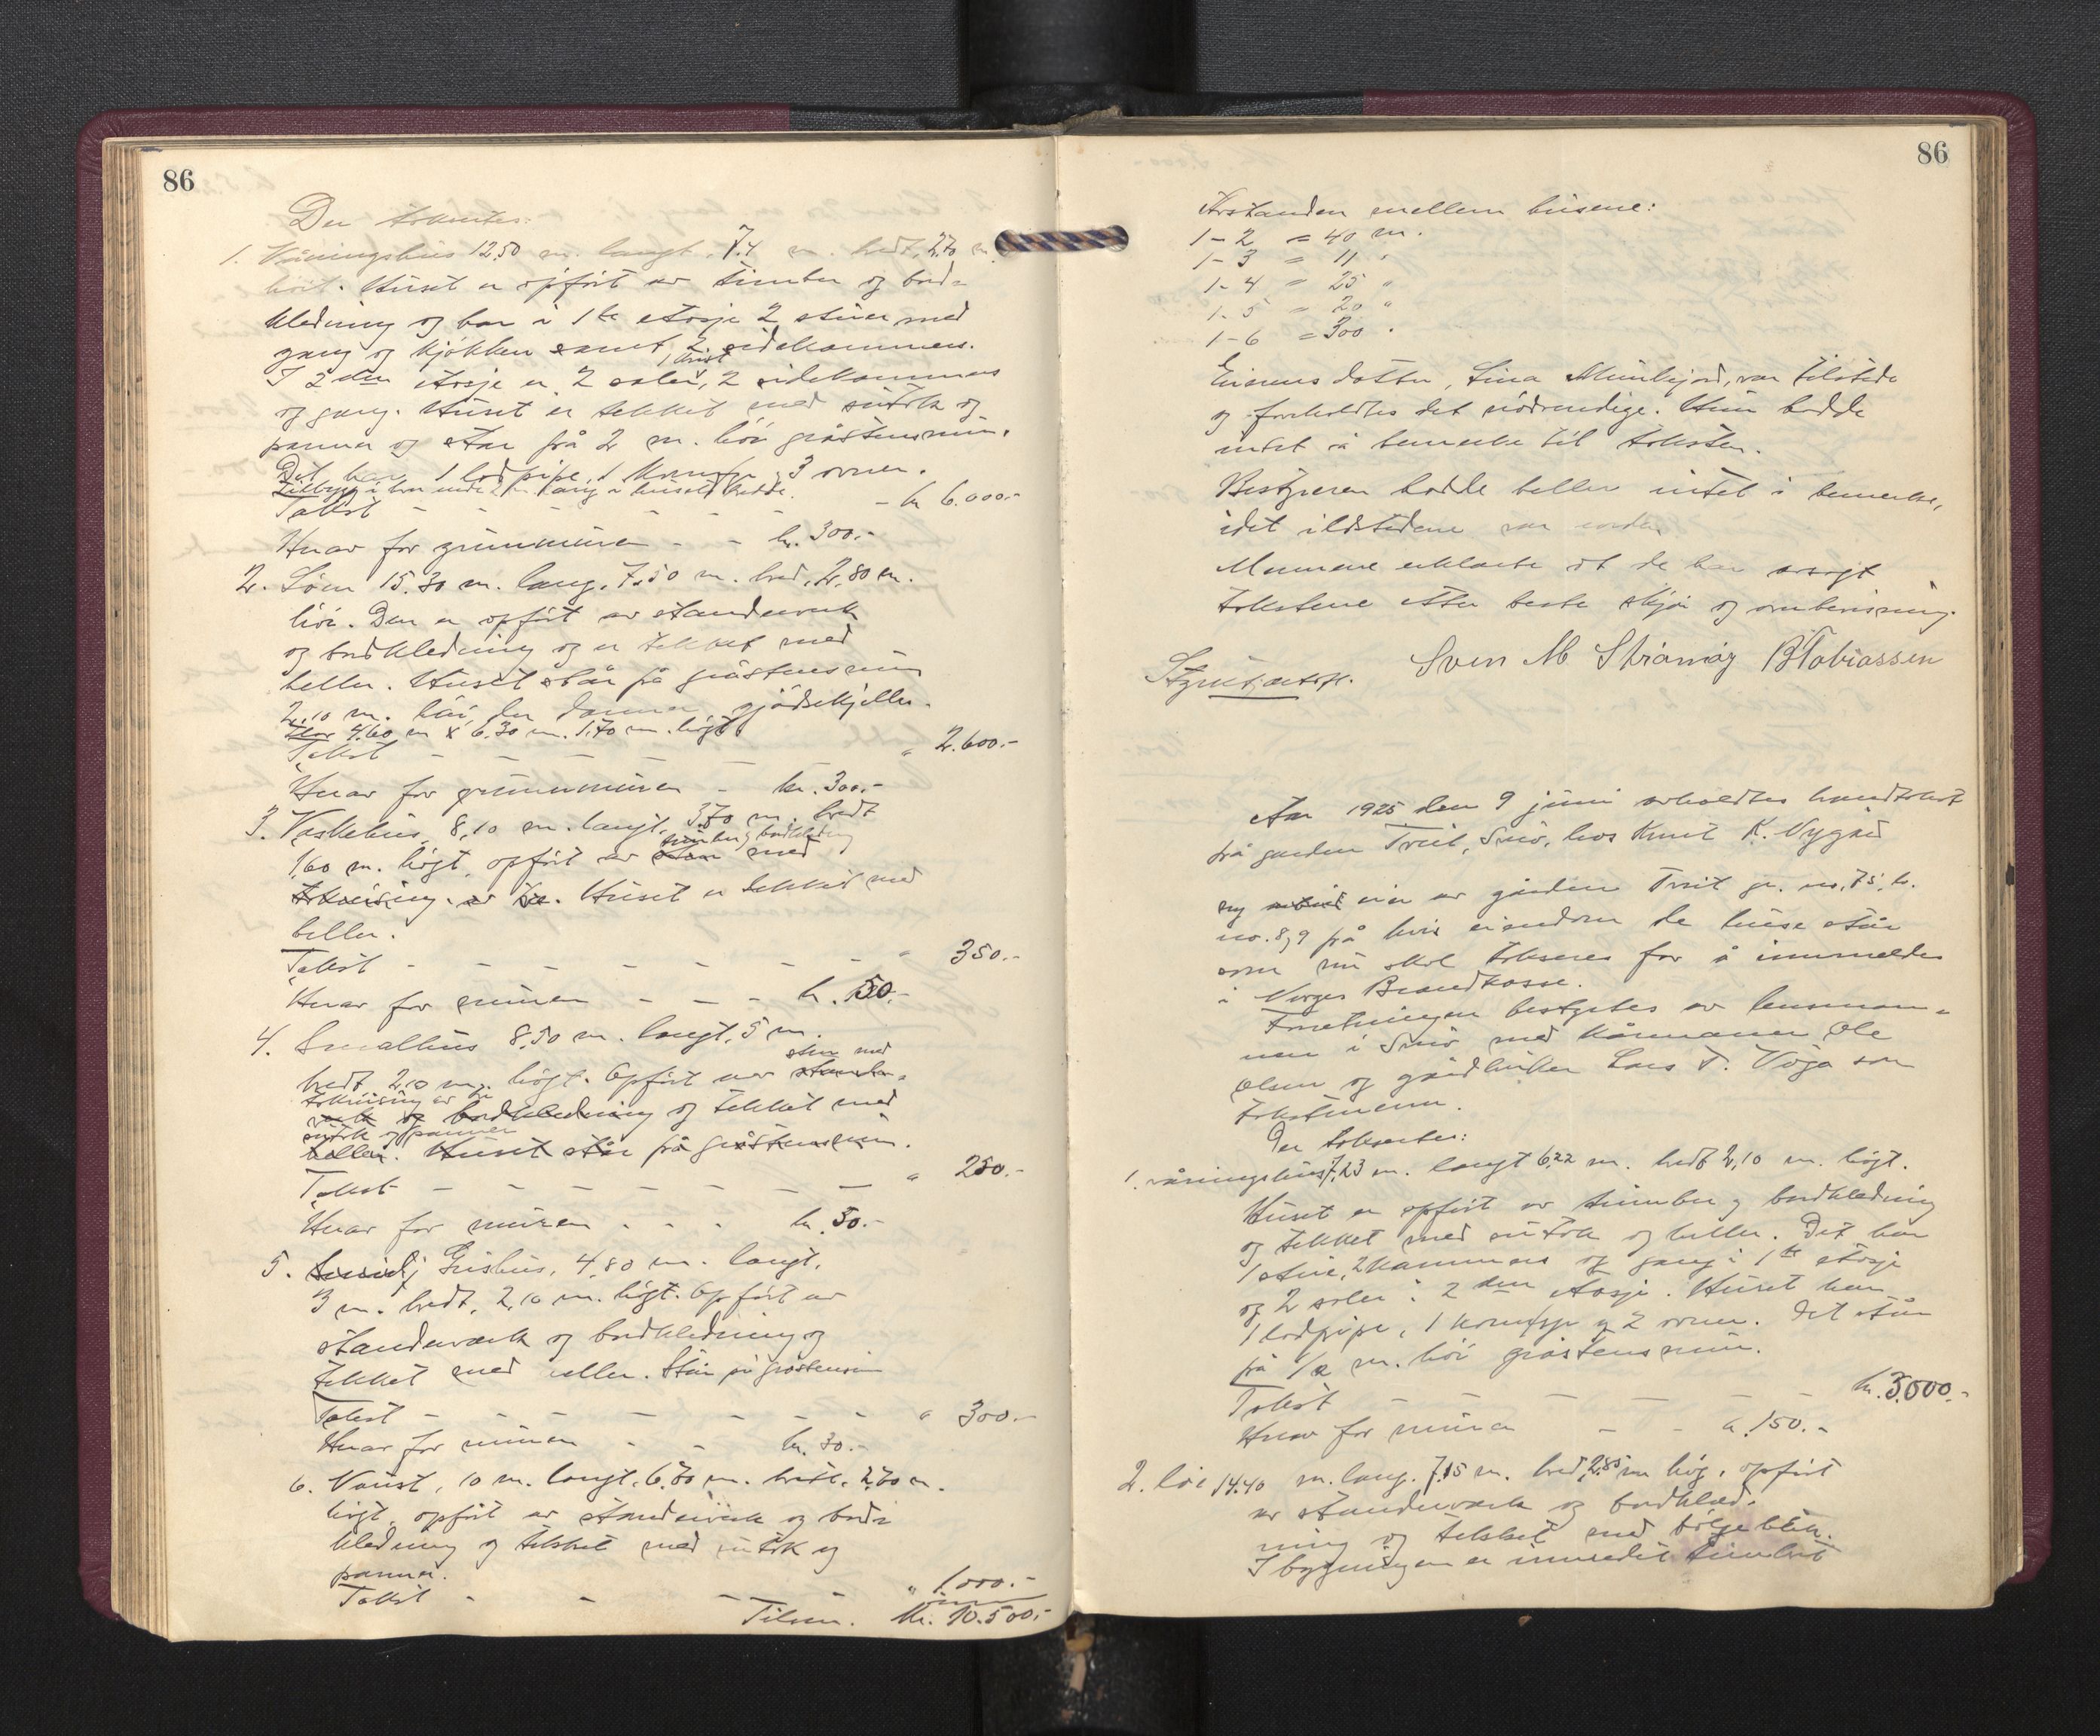 86
Der takseertes:
1. Våningshus 12,50 m. langt, 7.4 m. bredt, 2,70 m.
höit. Huset er opfört av timber og bord-
kledning og har i 1ste etasje 2 stuer med
gang og kjökken samt 2 sidekammers.
I 2den etasje er 2 saler, 1 kvist, 2 sidekammers
og gang. Huset er tekket med sutak og
panner og står på 2 m. höi gråstensmur.
Det har 1 lodpipe, 1 komfyr, 3 ovner.
Takst - - - - - - - kr 6.000.-
Herav for grunnmuren - - kr. 300.-
2. Löen 15.30 m. lang, 7,50 m. bred, 2,80 m.
höi. Den er opfört av standerverk
og bordkledning og er tekket med
heller. Huset står på gråstensmur
2,10 m. höi, der danner gjödselkjeller.
Flor 4,60 m x 6.30 m. 1,70 m. högt
Takst - - - - - - " 2.600.-
Herav for grunnmuren - kr. 300.-
3. Vaskehus, 8,10 m. langt, 3,70 m. bredt
timber og bordkledning
1,60 m. högt, opfört av sten med
tekning av tre. Huset er tekket med
heller.
Takst - - - - - - - " 350.-
Herav for muren - - - kr. 50.-
4. Smalhus 8.50 m. langt, 5 m.
sten med
bredt 2,10 m. högt. Opfört av stander-
verk og bordkledning og tekket med
sutak og panner
heller. Huset står på gråstensmur.
Takst - - - - - - - " 250.-
Herav for muren - - - kr. 50.-
5. Smidj Grishus, 4,80 m. langt,
3 m. bredt, 2,10 m. högt. Opfört av
standerverk og bordkledning og
tekket med heller. Står på gråstensmur
Takst - - - - - - - " 300.-
Herav for muren - - kr. 30.-
6. Naust, 10 m. langt, 6.70 m. bredt, 2,70 m.
högt, opfört av standerverk og bord-
kledning og tekket med sutak og
panner.
Takst - - - " 1.000.-
Tilsm. Kr. 10.500.-
86
Avstanden mellem husene:
1-2 = 40 m.
1-3 = 11 "
1-4 = 25 "
1-5 = 20 "
1-6 = 300 "
Eierens datter, Lina Munkejord, var tilstede
og foreholdtes det nödvendige. Hun hadde
intet å bemerke til taksten.
Bestyreren hadde heller intet å bemerke,
idet ildstedene var i orden
Mennene erklærte at de har avsagt
takstene etter beste skjön og overbevisning.
Sven M Straumöy BTobiassen
Aar 1925 den 9 juni avholdtes branntakst
på garden Tveit, Snio, hos Knut K. Nygård
og eier av gården Tveit gr. no. 75, br.
no. 8,9 på hvis eiendom de huse står
som nu skal takseres for å innmeldes
i Norges Brandkasse.
Forretningen bestyrtes av lensman-
nen i med Ole
Olsen og gårdbruker Lars T. Våga som
takstmenn.
Der takseertes:
1. våningshus, 7,23 m. langt 6,22 m. bredt 2,10 m. högt.
Huset er opfört av timber og bordkledning
og tekket med sutak og heller. Det har
1 stue, 2 kammers og gang i 1ste etasje
og 2 saler i 2den etasje. Huset har
1 lodpipe, 1 komfyr og 2 ovner. Det står
på 1/2 m. höi gråstensmur.
Takst - - - - - - kr. 3.000.-
Herav for muren - - kr. 150.-
2. löe 14.40 m. lang. 7,15 m. bred, 2,85 m hög, opfört
av standerverk og bordklæd-
ning og tekket med bölgeblik.
I bygningen er innredet timbret